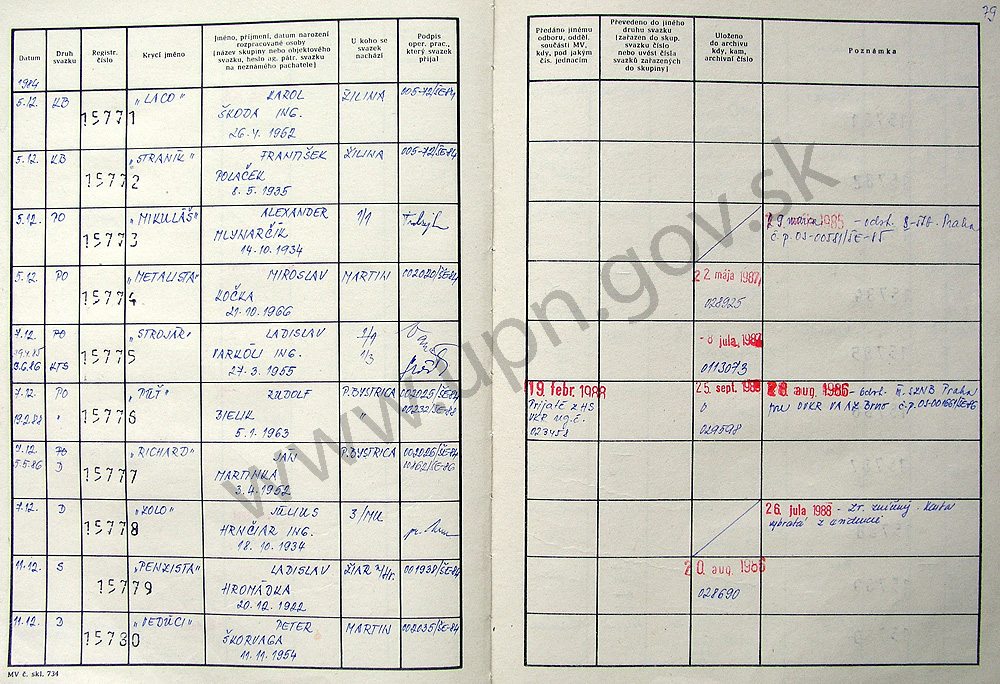 79
Datum
Druh
svazku
Registr.
číslo
Krycí jméno
Jméno, příjmení, datum narození
rozpracované osoby
[název skupiny nebo objektového
svazku, heslo ag. pátr. svazku
na neznámého pachatele]
U koho se
svazek
nachází
Podpis
oper. prac.,
který svazek
přijal
Předáno jinému
odboru, odděl.
součásti MV,
kdy, pod jakým
čís. jednacím
Převedeno do jiného
druhu svazku
[zařazen do skup.
svazku číslo
nebo uvést čísla
svazků zařazených
do skupiny]
Uloženo
do archivu
kdy, kam,
archivní číslo
Poznámka
1984
5.12. KB 15771 "LACO" KAROL ŽILINA 005-72/ŠE-84
ŠKODA ING.
1962
5.12. KB 15772 "STRANÍK" FRANTIŠEK ŽILINA 005-72/ŠE-84
POLAČEK
8.5.1935
5.12. PO 15773 "MIKULÁŠ" ALEXANDER 1/1
MLYNARČIK
14.10.1934
29 mája 1985 - odst. Praha
5.12. PO 15774 "METALISTA" MIROSLAV MARTIN 002020/ŠE-84
KOČKA
21.10.1966
22. mája 1987
028925
7.12. PO 15775 "STROJÁR" LADISLAV
ING. 1/3
27.3.1955
KTS
- 8 júla 1987
0113073
7.12. PO 15776 RUDOLF P.BYSTRICA 002025/ŠE-84
19.2.88 BIELIK 00232/ŠE-88
5.1.1963
19. febr. 1988
Prijaté z HS
023458
25. sept.
D
029598
28. aug. 1986 - odst. Praha
7.12. PO 15777 "RICHARD" JÁN P.BYSTRICA 002026/ŠE-84
5.5.86 D MARTINKA
3.4.1952
7.12. D 15778 "KOLO" JÚLIUS 3/MU
HRNČIAR ING.
18.10.1934
26. júla 1988 - Zv. zničený. Karta
vybratá z evidencie
11.12. S 15779 "PENZISTA" LADISLAV ŽIAR n/Hr. 001938/ŠE-84
HROMÁDKA
20.12.1922
20. aug. 1986
028690
11.12. D 15780 "VEDÚCI" PETER MARTIN 002035/ŠE-84
ŠKORVAGA
11.11.1954
MV č. skl. 734
www.upn.gov.sk